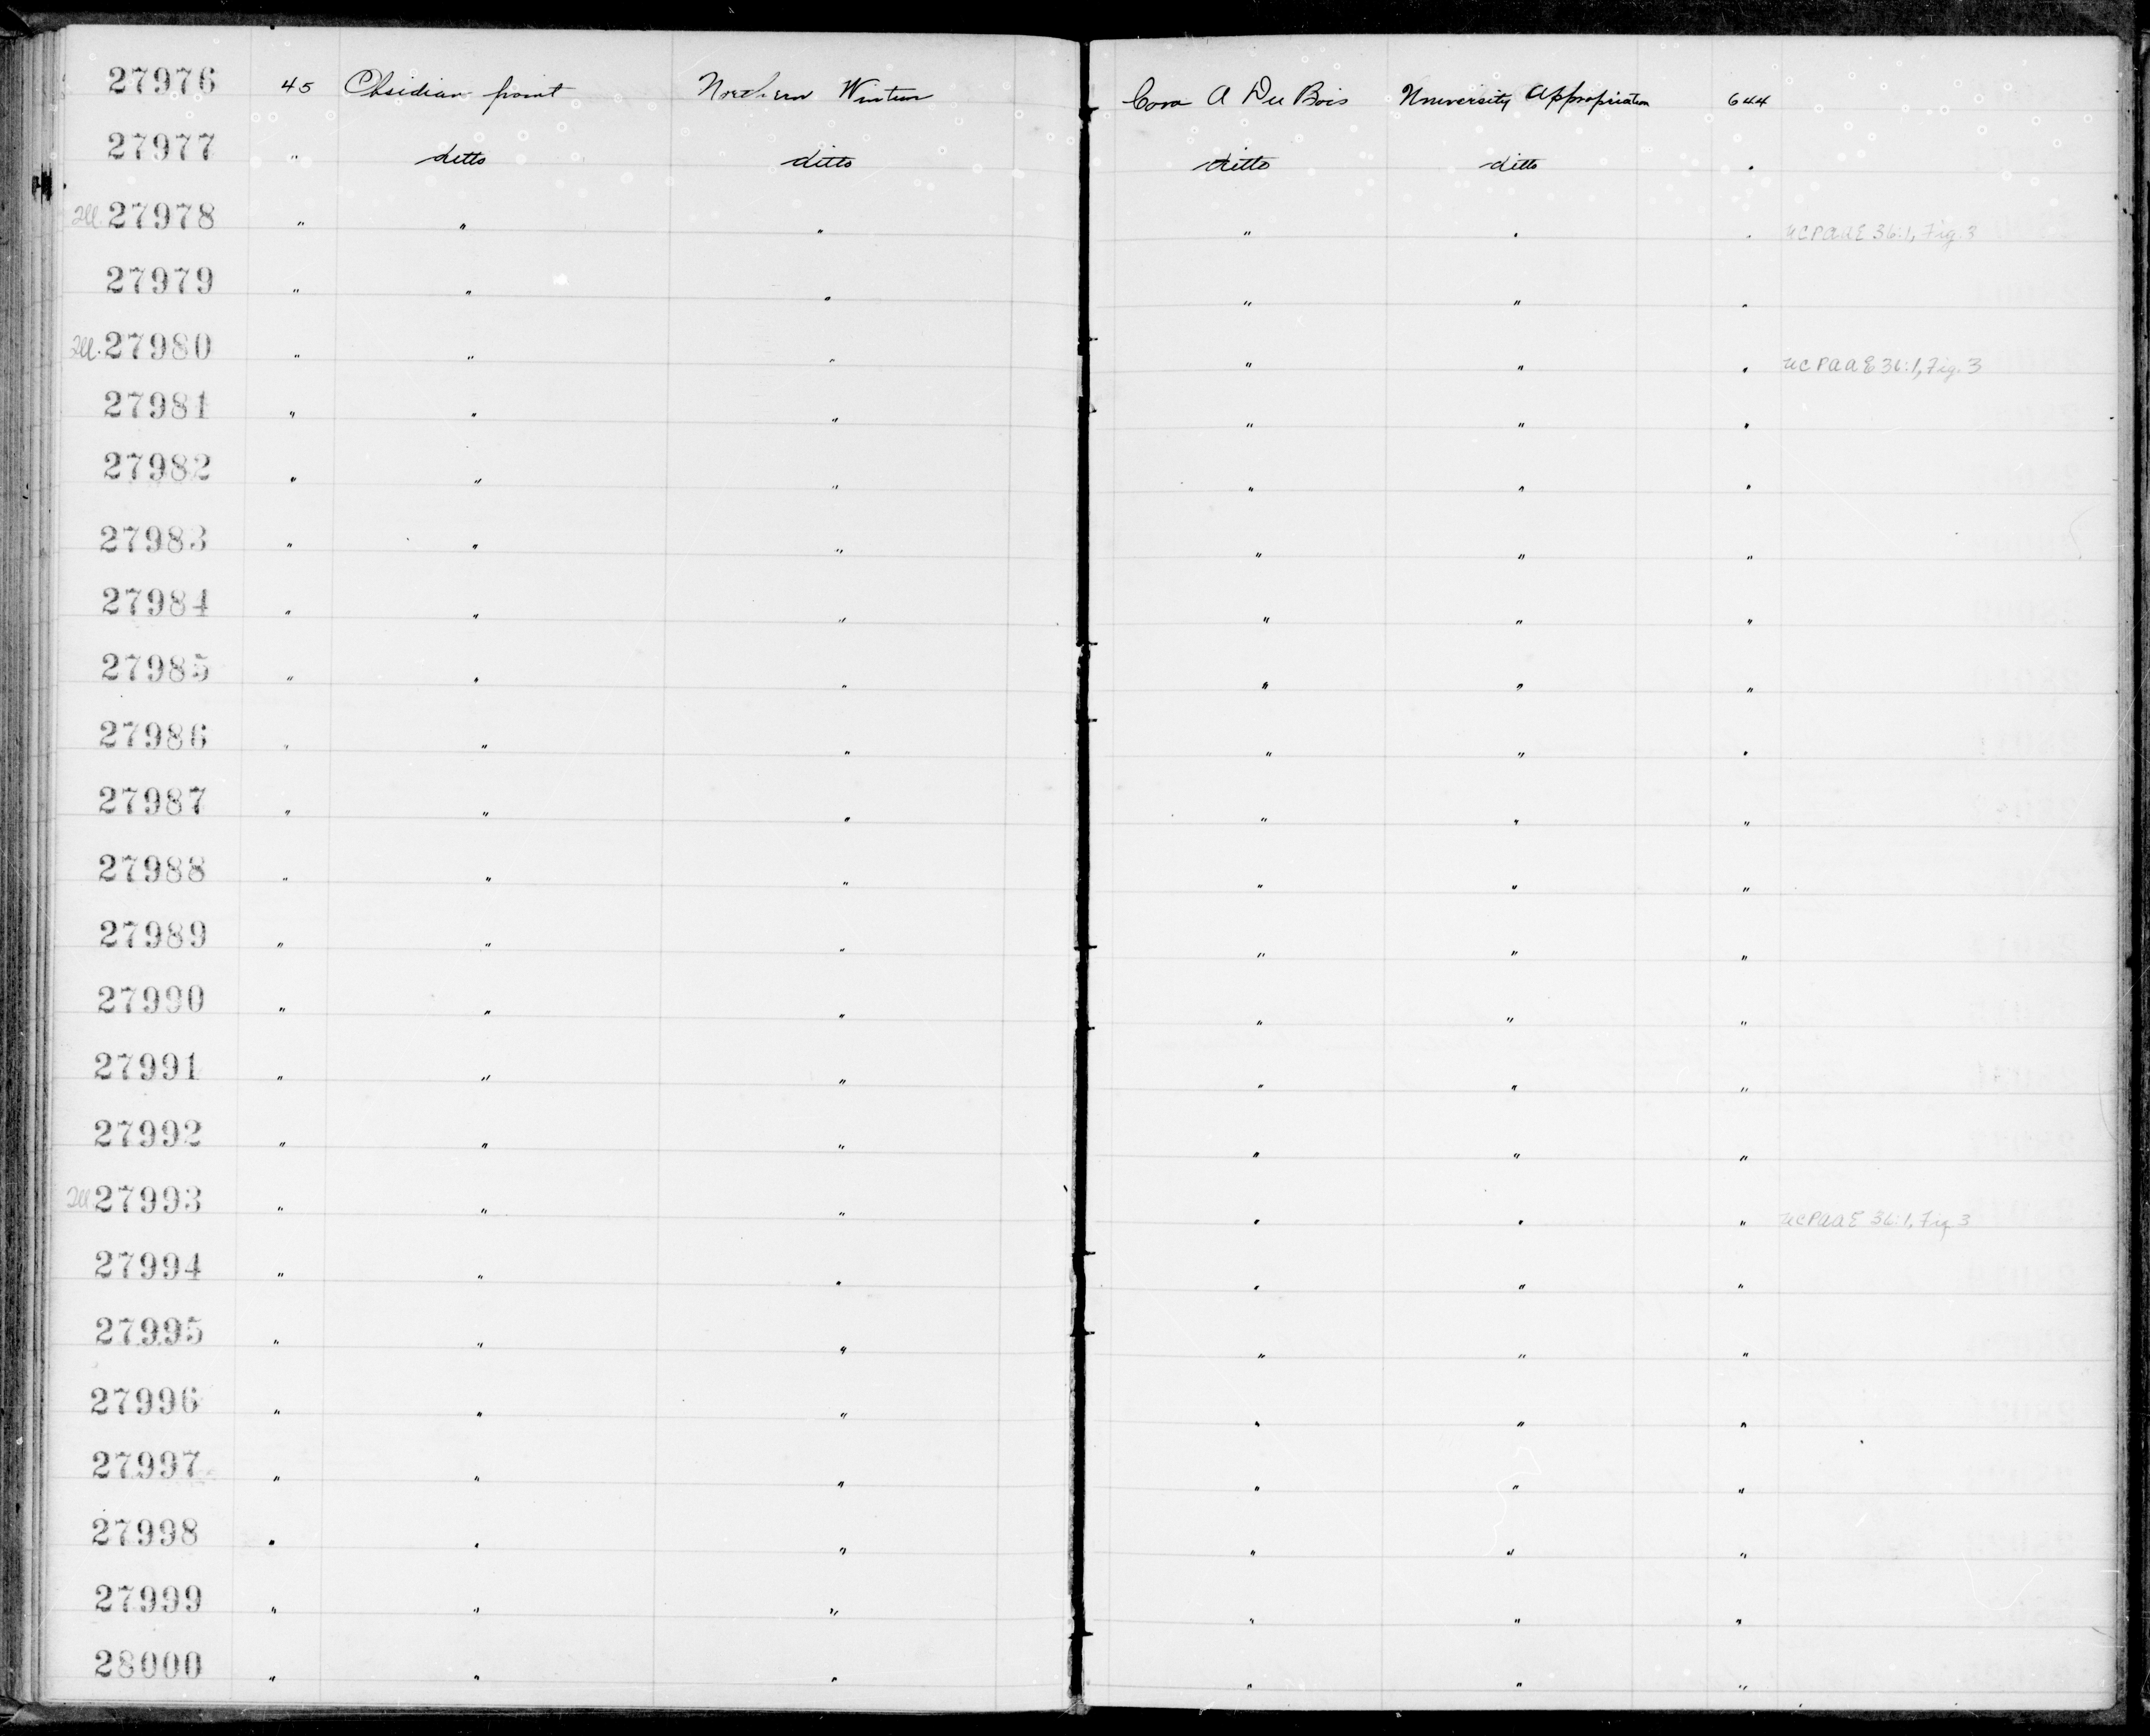 27976 45 Obsidian point Northern Wintun Cora A Du Bois University Appropriation 644
27977 " ditto ditto ditto ditto "
Ill. 27978 " " " " " " UCPAAE 36:1, Fig. 3
27979 " " " " " "
Ill. 27980 " " " " " " UCPAAE 36:1, Fig. 3
27981 " " " " " "
27982 " " " " " "
27983 " " " " " "
27984 " " " " " "
27985 " " " " " "
27986 " " " " " "
27987 " " " " " "
27988 " " " " " "
27989 " " " " " "
27990 " " " " " "
27991 " " " " " "
27992 " " " " " "
Ill 27993 " " " " " " UCPAAE 36:1, Fig 3
27994 " " " " " "
27995 " " " " " "
27996 " " " " " "
27997 " " " " " "
27998 " " " " " "
27999 " " " " " "
28000 " " " " " "